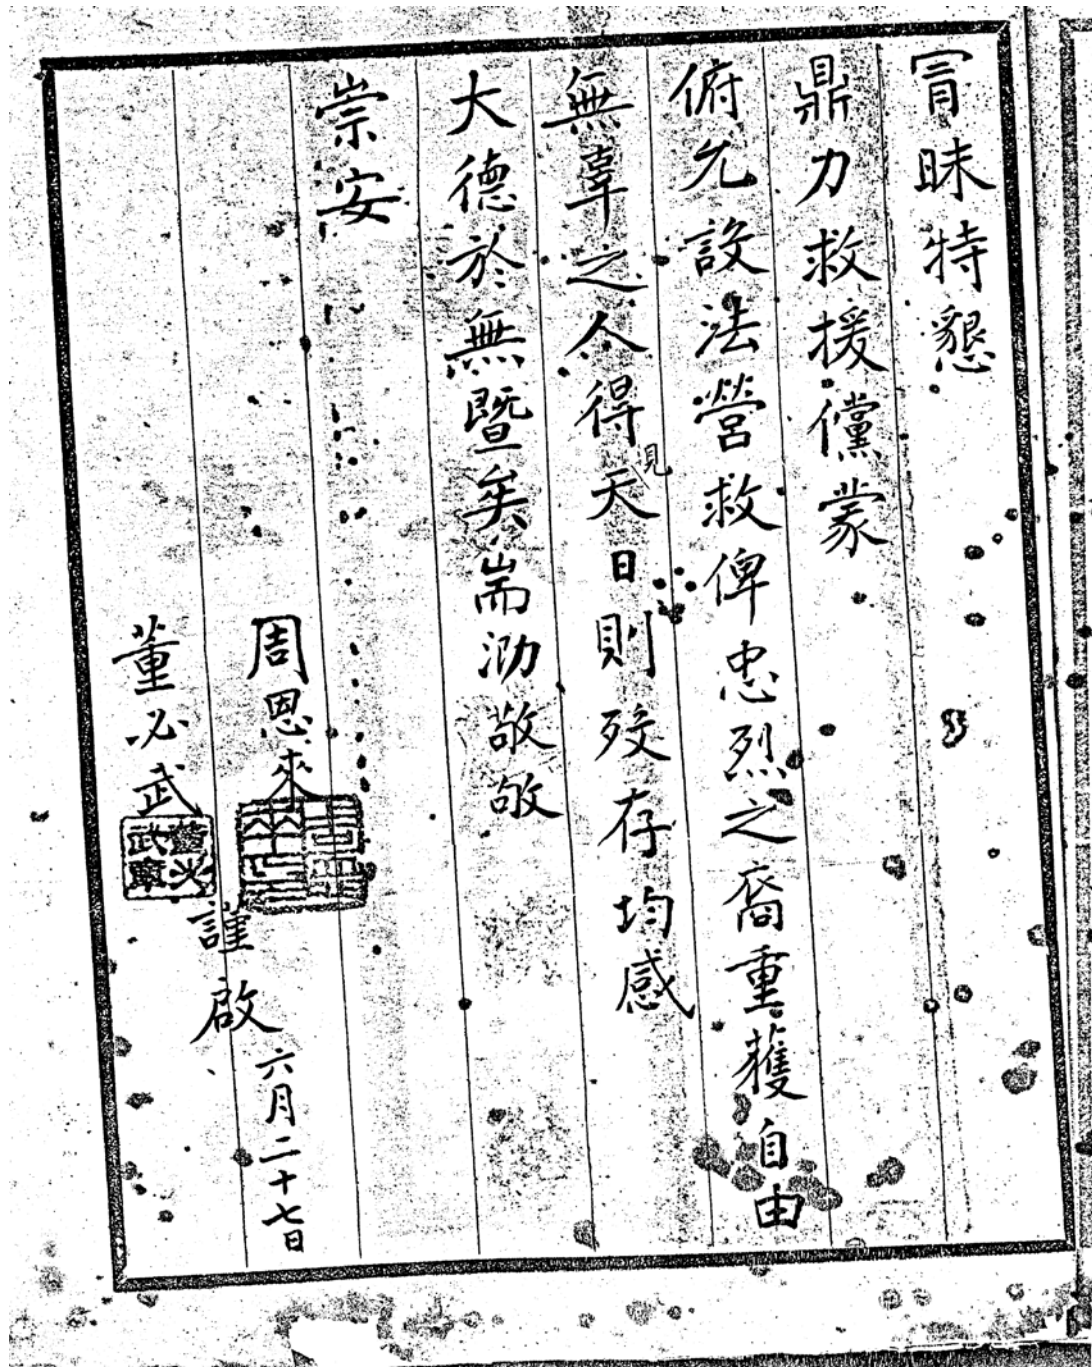 冒昧特懇
鼎力救援儻蒙
俯允設法營救俾忠烈之裔重獲自由
無辜之人得見天日則歿存均感
大德於無暨矣耑泐敬敂
崇安
周恩來
董必武
謹啟
六月二十七日
董必
武章